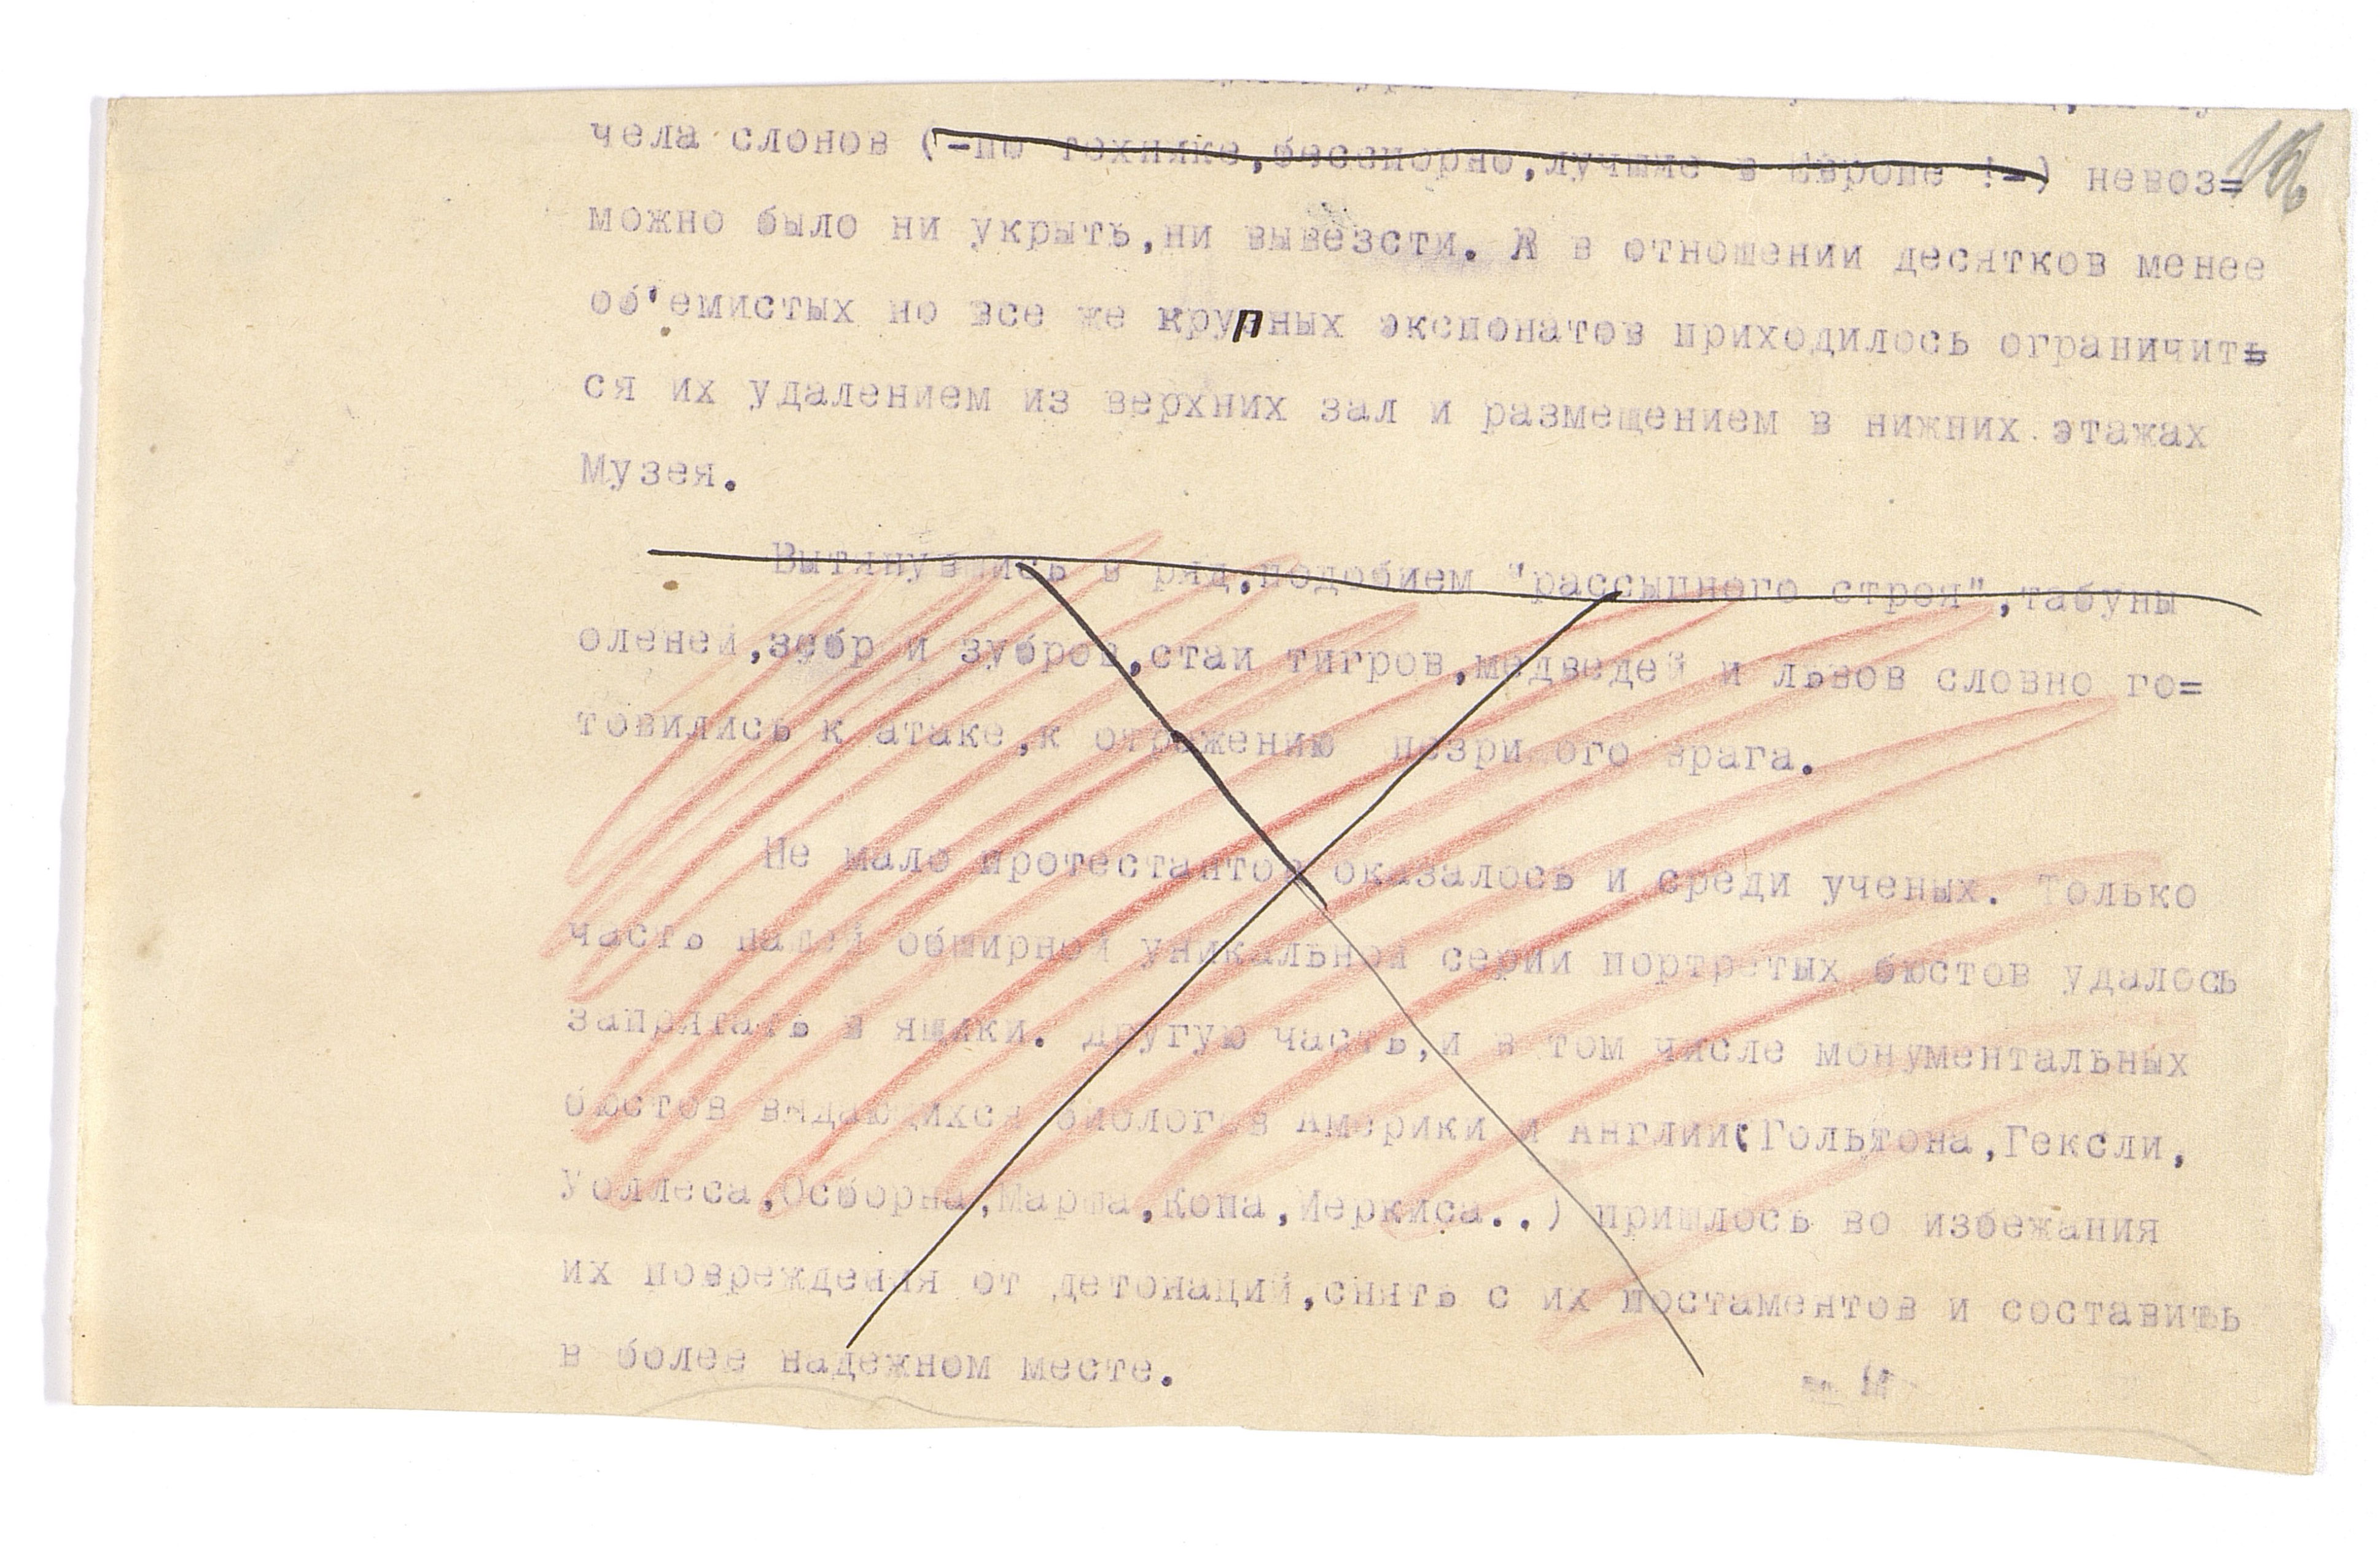 чела слонов (-по технике,бесспорно,лучшие в Европе !-) невоз=
можно было ни укрыть,ни вывезсти. А в отношении десятков менее
об'емистых но все же крупных экспонатов приходилось ограничить
ся их удалением из верхних зал и размещением в нижних этажах
Музея.
Вытянувшись в ряд,подобием "рассыпного строя",табуны
оленей,зебр и зубров,стаи тигров,медведей и львов словно го=
товились к атаке,к отражению незримого врага.
Не мало протестантов оказалось и среди ученых. Только
часть нашей обширной уникальной серии портретых бюстов удалось
запрятать в ящики. Другую часть,и в том числе монументальных
бюстов выдающихся биологов Америки и Англии(Гольтона,Гексли,
Уоллеса,Осборна,Марша,Копа,Иеркиса..) пришлось во избежания
их повреждения от детонаций,снять с их постаментов и составить
в более надежном месте.